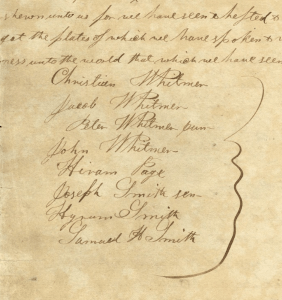 shewn unto us for we have seen & hefted &
got the plates of which we have spoken &
ness unto the world that which we have seen
Christian Whitmer
Jacob Whitmer
Peter Whitmer jun
John Whitmer
Hiram Page
Joseph Smith sen
Hyrum Smith
Samuel H Smith